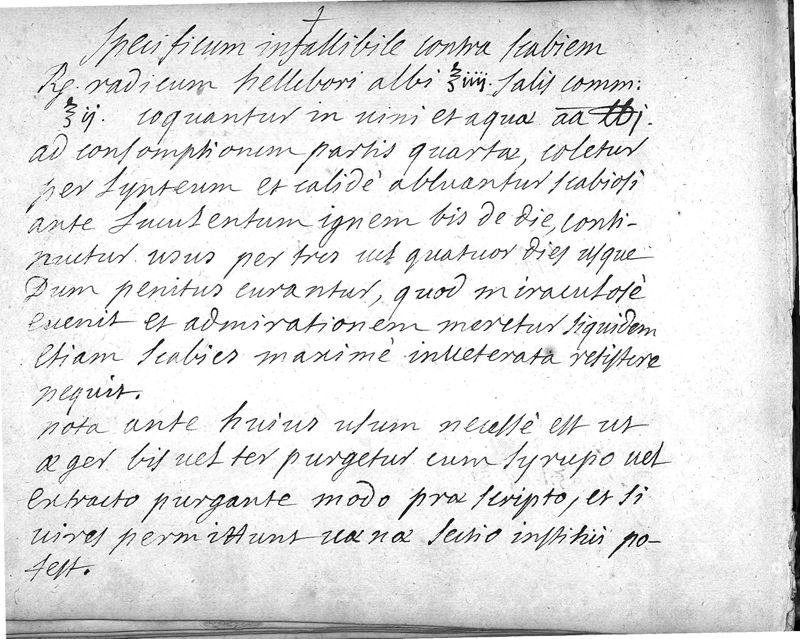 Specificum infallibile contra scabiem
℞. radicum hellebori albi ℥iiij. salis comm:
℥ij. coquantur in vini et aquæ aa lbj.
ad consomptionem partis quartæ, coletur
per lynteum et calidè abluantur scabiosi
ante luculentum ignem bis de die, conti-
nuetur usus per tres vel quatuor dies usque
Dum penitus curantur, quod miraculosè
evenit et admirationem meretur siquidem
etiam scabies maximè inveterata resistere
nequit.
nota ante huius usum necessè est ut
æger bis vel ter purgetur cum syrupo vel
extracto purgante modo præscripto, et si
vires permittunt venæ sectio institui po-
test.